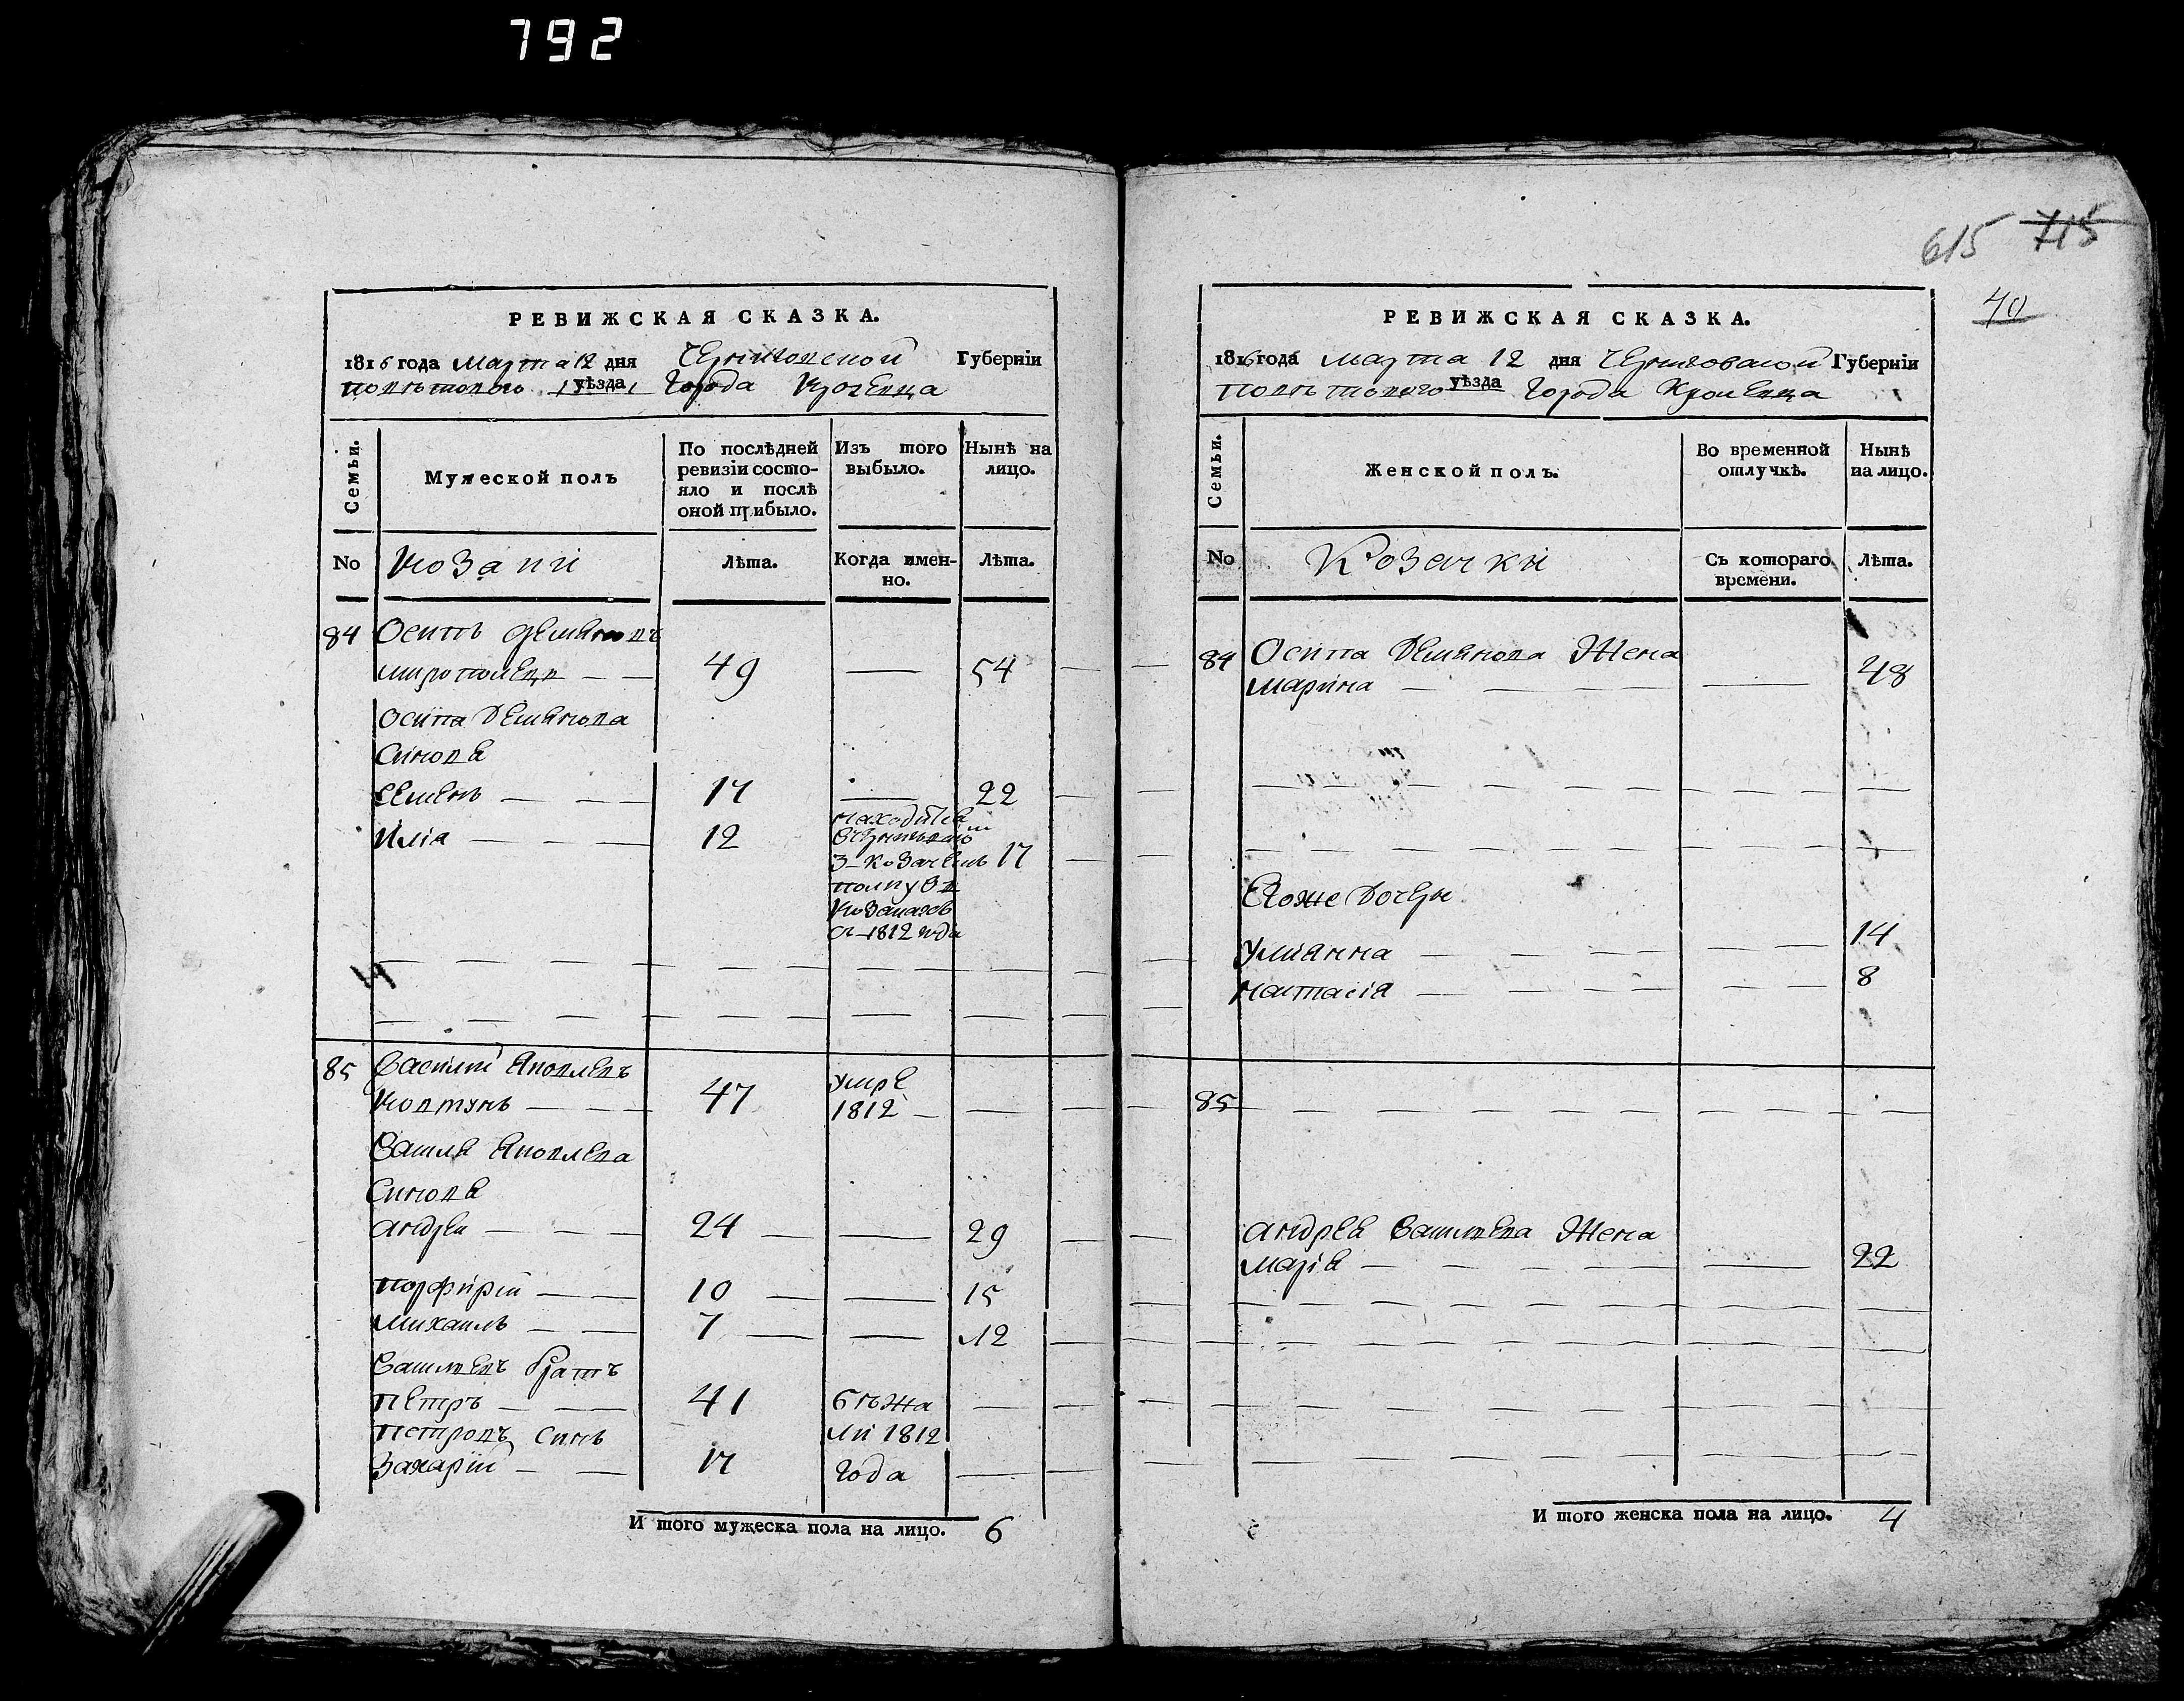 792
615 715
40
РЕВИЖСКАЯ СКАЗКА.
1816 года Марта 12 дня Черниговской Губерніи
Повѣтового уѣзда Города Кролевца
Семьи.
Мужеской полъ
По послѣдней ревизіи состо-
яло и послѣ
оной прибыло.
Изъ того
выбыло.
Нынѣ на
лицо.
No
Козаки
Лѣта.
Когда имен-
но.
Лѣта.
84 Осипъ Демяновъ
Мирополецъ 49 54
Осипа Демянова
Синове
Семенъ 17 22
Иліа 12 17
находится
3-Козачемъ
полку в
Козаках
с-1812 года
85 Василій Яковлевъ
Ковтунъ 47 умре
1812
Василя Яковлева
Синове
Андреи 24 29
Порфирій 10 15
Михаилъ 7 12
Василевъ братъ
Петръ 41 бѣжа
Петровъ синъ ли 1812
Захарій 17 года
И того мужеска пола на лицо. 6
РЕВИЖСКАЯ СКАЗКА.
1816 года Марта 12 дня Черниговской Губерніи
Повѣтового уѣзда Города Кролевца
Семьи.
Женской полъ.
Во временной
отлучкѣ.
Нынѣ
на лицо.
No
Козачки
Съ котораго
времени.
Лѣта.
84 Осипа Демянова Жена
Марина 48
Егоже Дочери
Улиянна 14
Настасія 8
85
Андрея Василева Жена
Марія 22
И того женска пола на лицо. 4